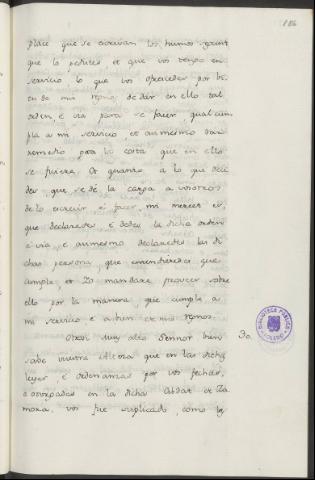 186
place que se escrivan los humos segunt
que lo pedides et que vos tengo en
servicio lo que vos ofrecedes por bi
en de mis regnos de dar en ello tal
orden, e via para se facer, qual cum
pla a mi servicio et asimesmo dar
remedio para la costa que en ello
se ficiera. Et quanto a lo que deci
des que se dé la carga a vosotros
de lo escrivir é facer, mi merced es,
que declaredes é dedes la dicha orden
é via, e asimesmo declaredes las di
chas personas, que entendieredes que
cumple, et Yo mandaré proveer sobre
ello por la manera, que cumpla a
mi servicio é a bien de mis regnos.
Otrosi Muy alto Sennor bien 30.
sabe vuestra Alteza que en las dichas
leyes, é ordenanzas por vos fechas,
é otorgadas en la dicha Cibdat de Za
mora, vos fue suplicado, como los
BIBLIOTECA PUBLICA
TOLEDO